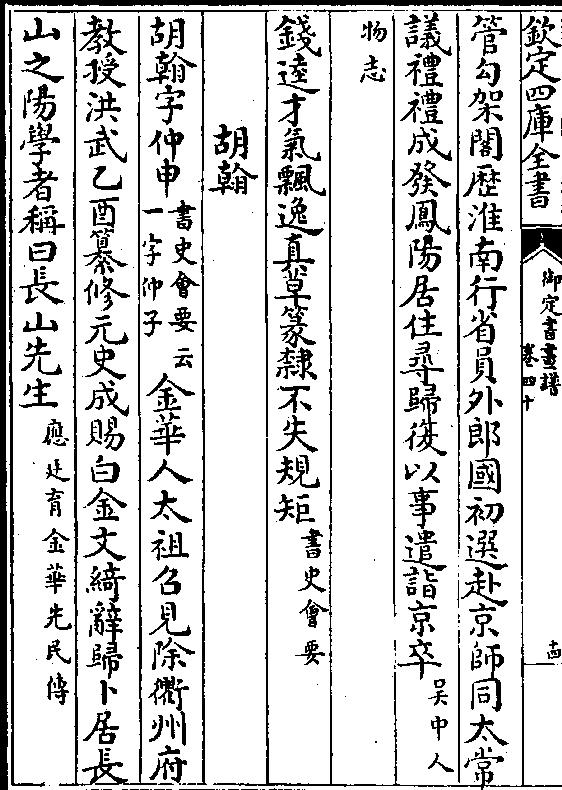 欽定四庫全書
御定書畫譜
卷四十
十四
管勾架閣歴淮南行省員外郎國初選赴京師同太常
議禮禮成發鳳陽居住尋歸復以事遣詣京卒吳中人
物志
錢逵才氣飄逸真草篆隸不失規矩書史會要
胡翰
胡翰字仲申書史會要云一字仲子金華人太祖召見除衢州府
教授洪武乙酉纂修元史成賜白金文綺辭歸卜居長
山之陽學者稱曰長山先生應廷育金華先民傳